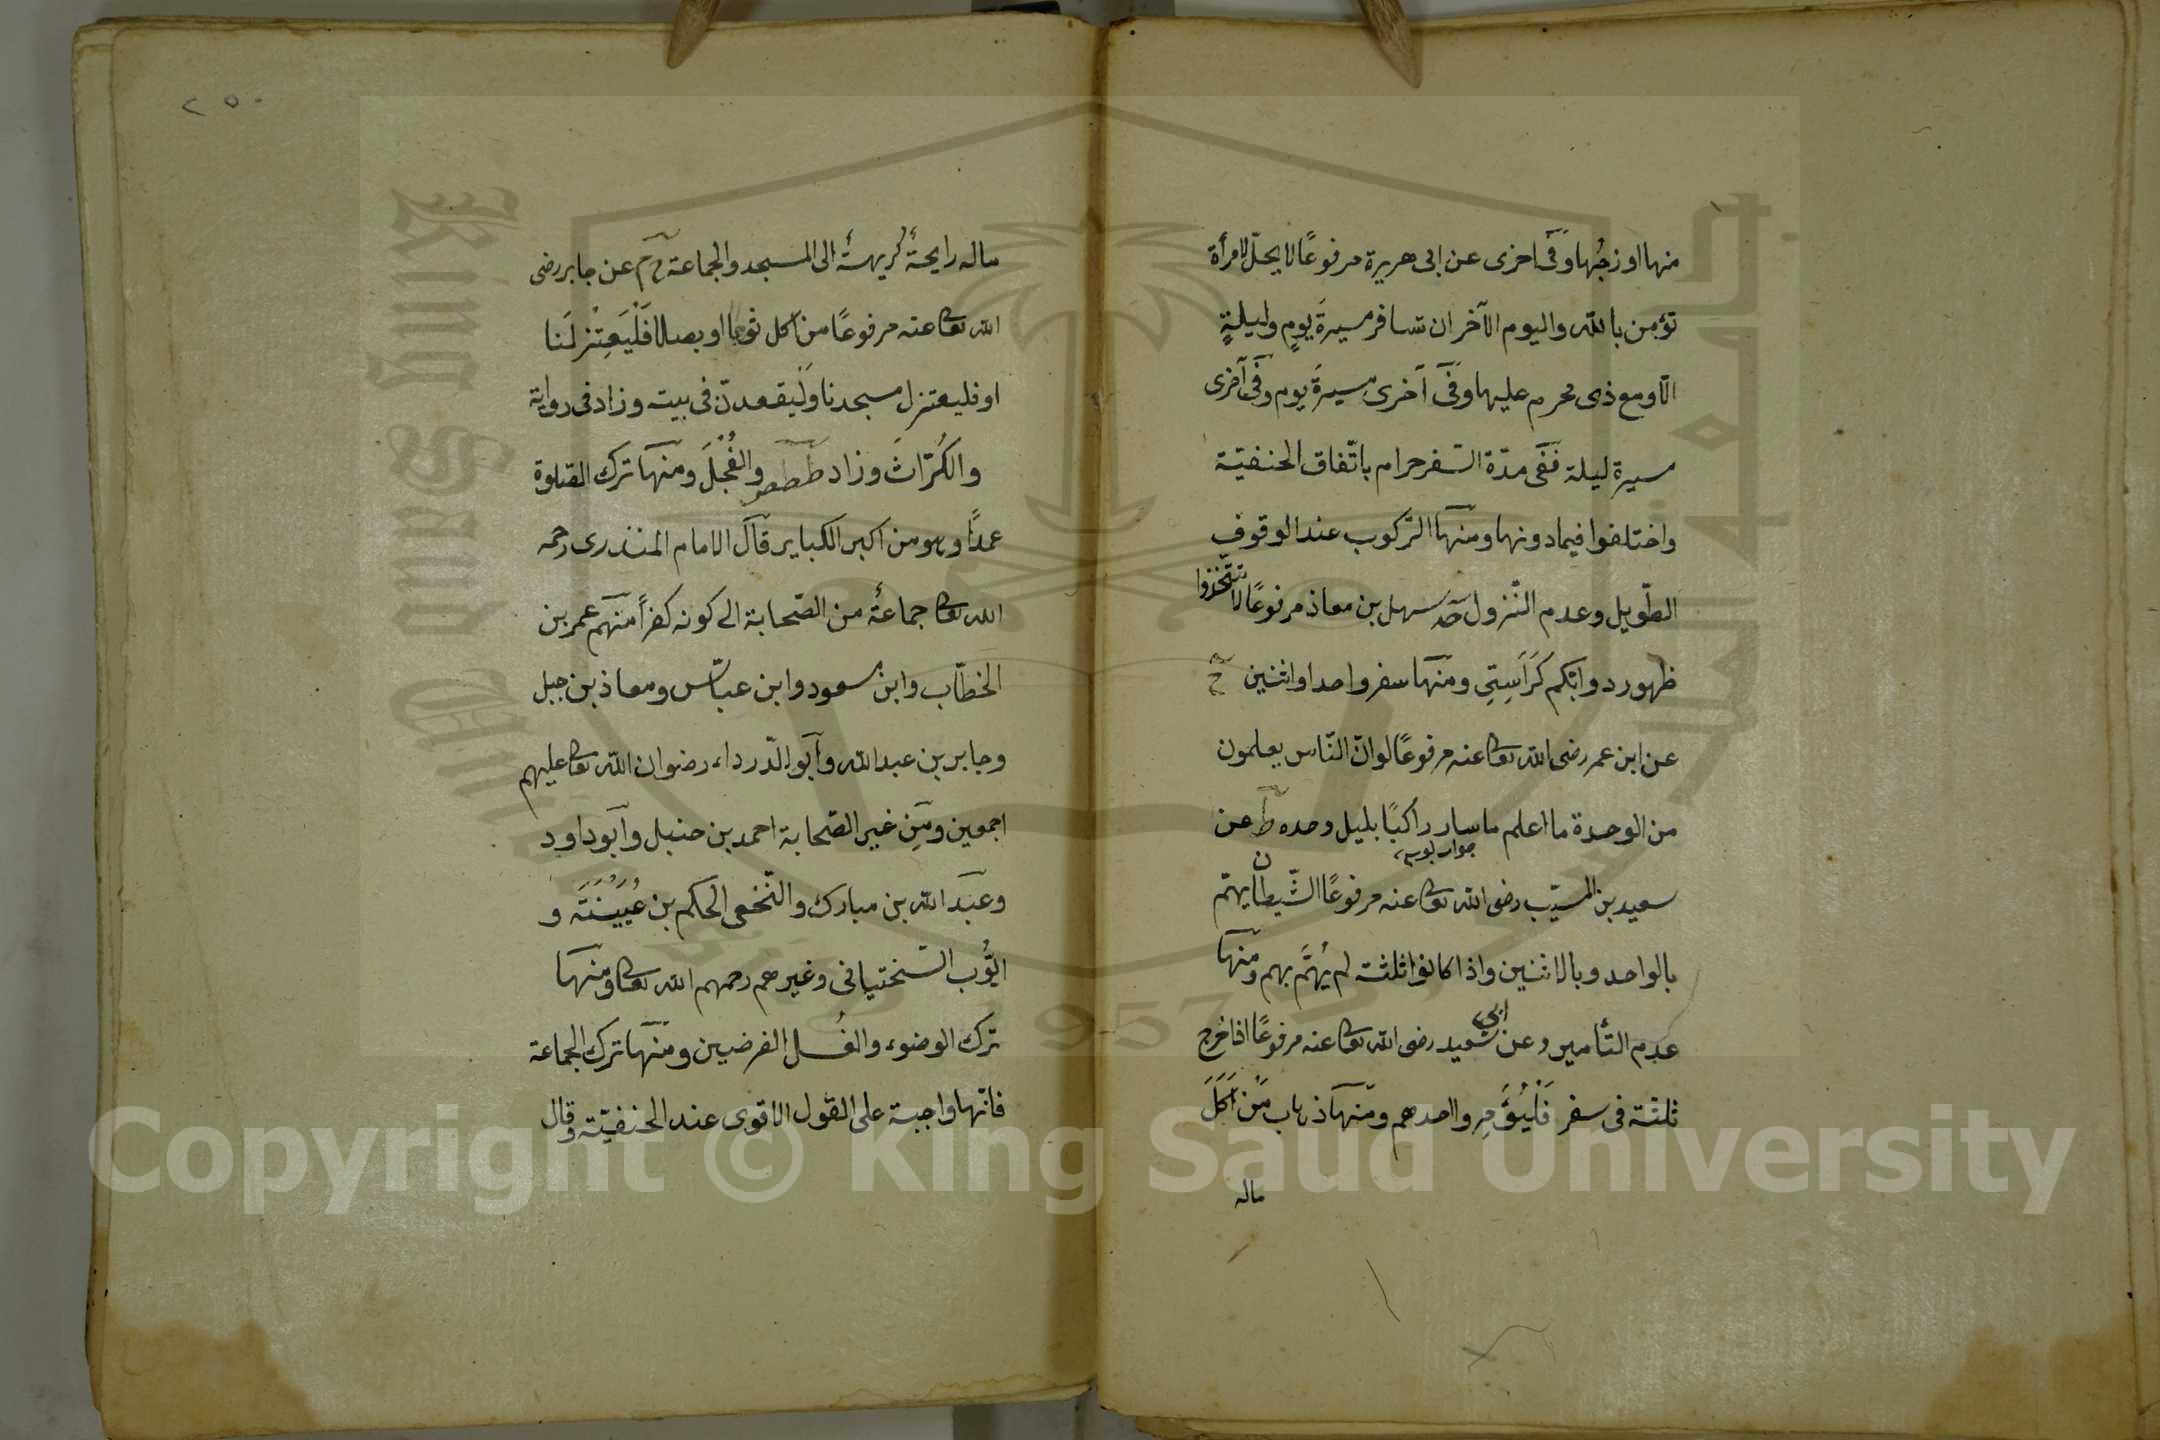 منها او زجُها وفى اخرى عن ابى هريرة مرفوعًا لا يحلّ لامرأة
تؤمن بالله واليوم الآخر ان تسافر مسيرةَ يومٍ وليلةٍ
الّا ومع ذى محرم عليها وفى آخرى مسيرةَ يوم وفى آخرى
مسيرة ليلة ففى مدّة السّفر حرام باتّفاق الحنفيّة
واختلفوا فيما دونها ومنها الرّكوب عند الوقوف
الطّويل وعدم النّزول حد سهل بن معاذ مرفوعًا لا تتّخذوا
ظهور دوابّكم كَرَاسِىّ ومنها سفر واحد او اثنين خ
عن ابن عمر رضى الله تعا عنه مرفوعًا لو انّ النّاس يعلمون
من الوحدة ما اعلم ما سار راكبًا بليل وحده ط عن
سعيد بن المسيّب رضى الله تعا عنه مرفوعًا الشّيطان يهتم
بالواحد وبالاثنين واذا كانوا ثلثة لم يُهتَّم بهم ومنها
عدم التأمير د عن ابي سعيد رضى الله تعا عنه مرفوعًا اذا خرج
ثلثة فى سفر فَلْيُؤَمِرو احدهم ومنها ذهاب مَن اَكَلَ
ماله
٢٥٠
ماله رايحةٌ كريهةٌ الى المسجد والجماعة خ م عن جابر رضى
الله تعا عنه مرفوعًا من اكل ثوما او بصلا فَلْيَعتِزلْنا
او فليعتزل مسجدنا وَليقعدنّ فى بيته وزاد فى رواية
والكُرّاثَ وزاد ططص والفُجْلَ ومنها ترك الصّلوة
عمدًا وهو من اكبر الكباير قال الامام المنذرى رحمه
الله تعا جماعةٌ من الصّحابة الى كونه كفراً منهم عمر بن
الخطّاب وابن مسعود وابن عبّاس ومعاذ بن جبل
وجابر بن عبد الله وابو الدّرداء رضوان الله تعا عليهم
اجمعين ومِن غير الصّحابة احمد بن حنبل وابو داود
وعبد الله بن مبارك والنّخعى الحكم بن عُيَيْنَةَ و
ايُّوب السّختيانى وغيرهم رحمهم الله تعا ومنها
ترك الوضوء والغُسل الفرضين ومنها ترك الجماعة
فانّها واجبة على القول الاقوى عند الحنفيّة وقال
Copyright © King Saud University